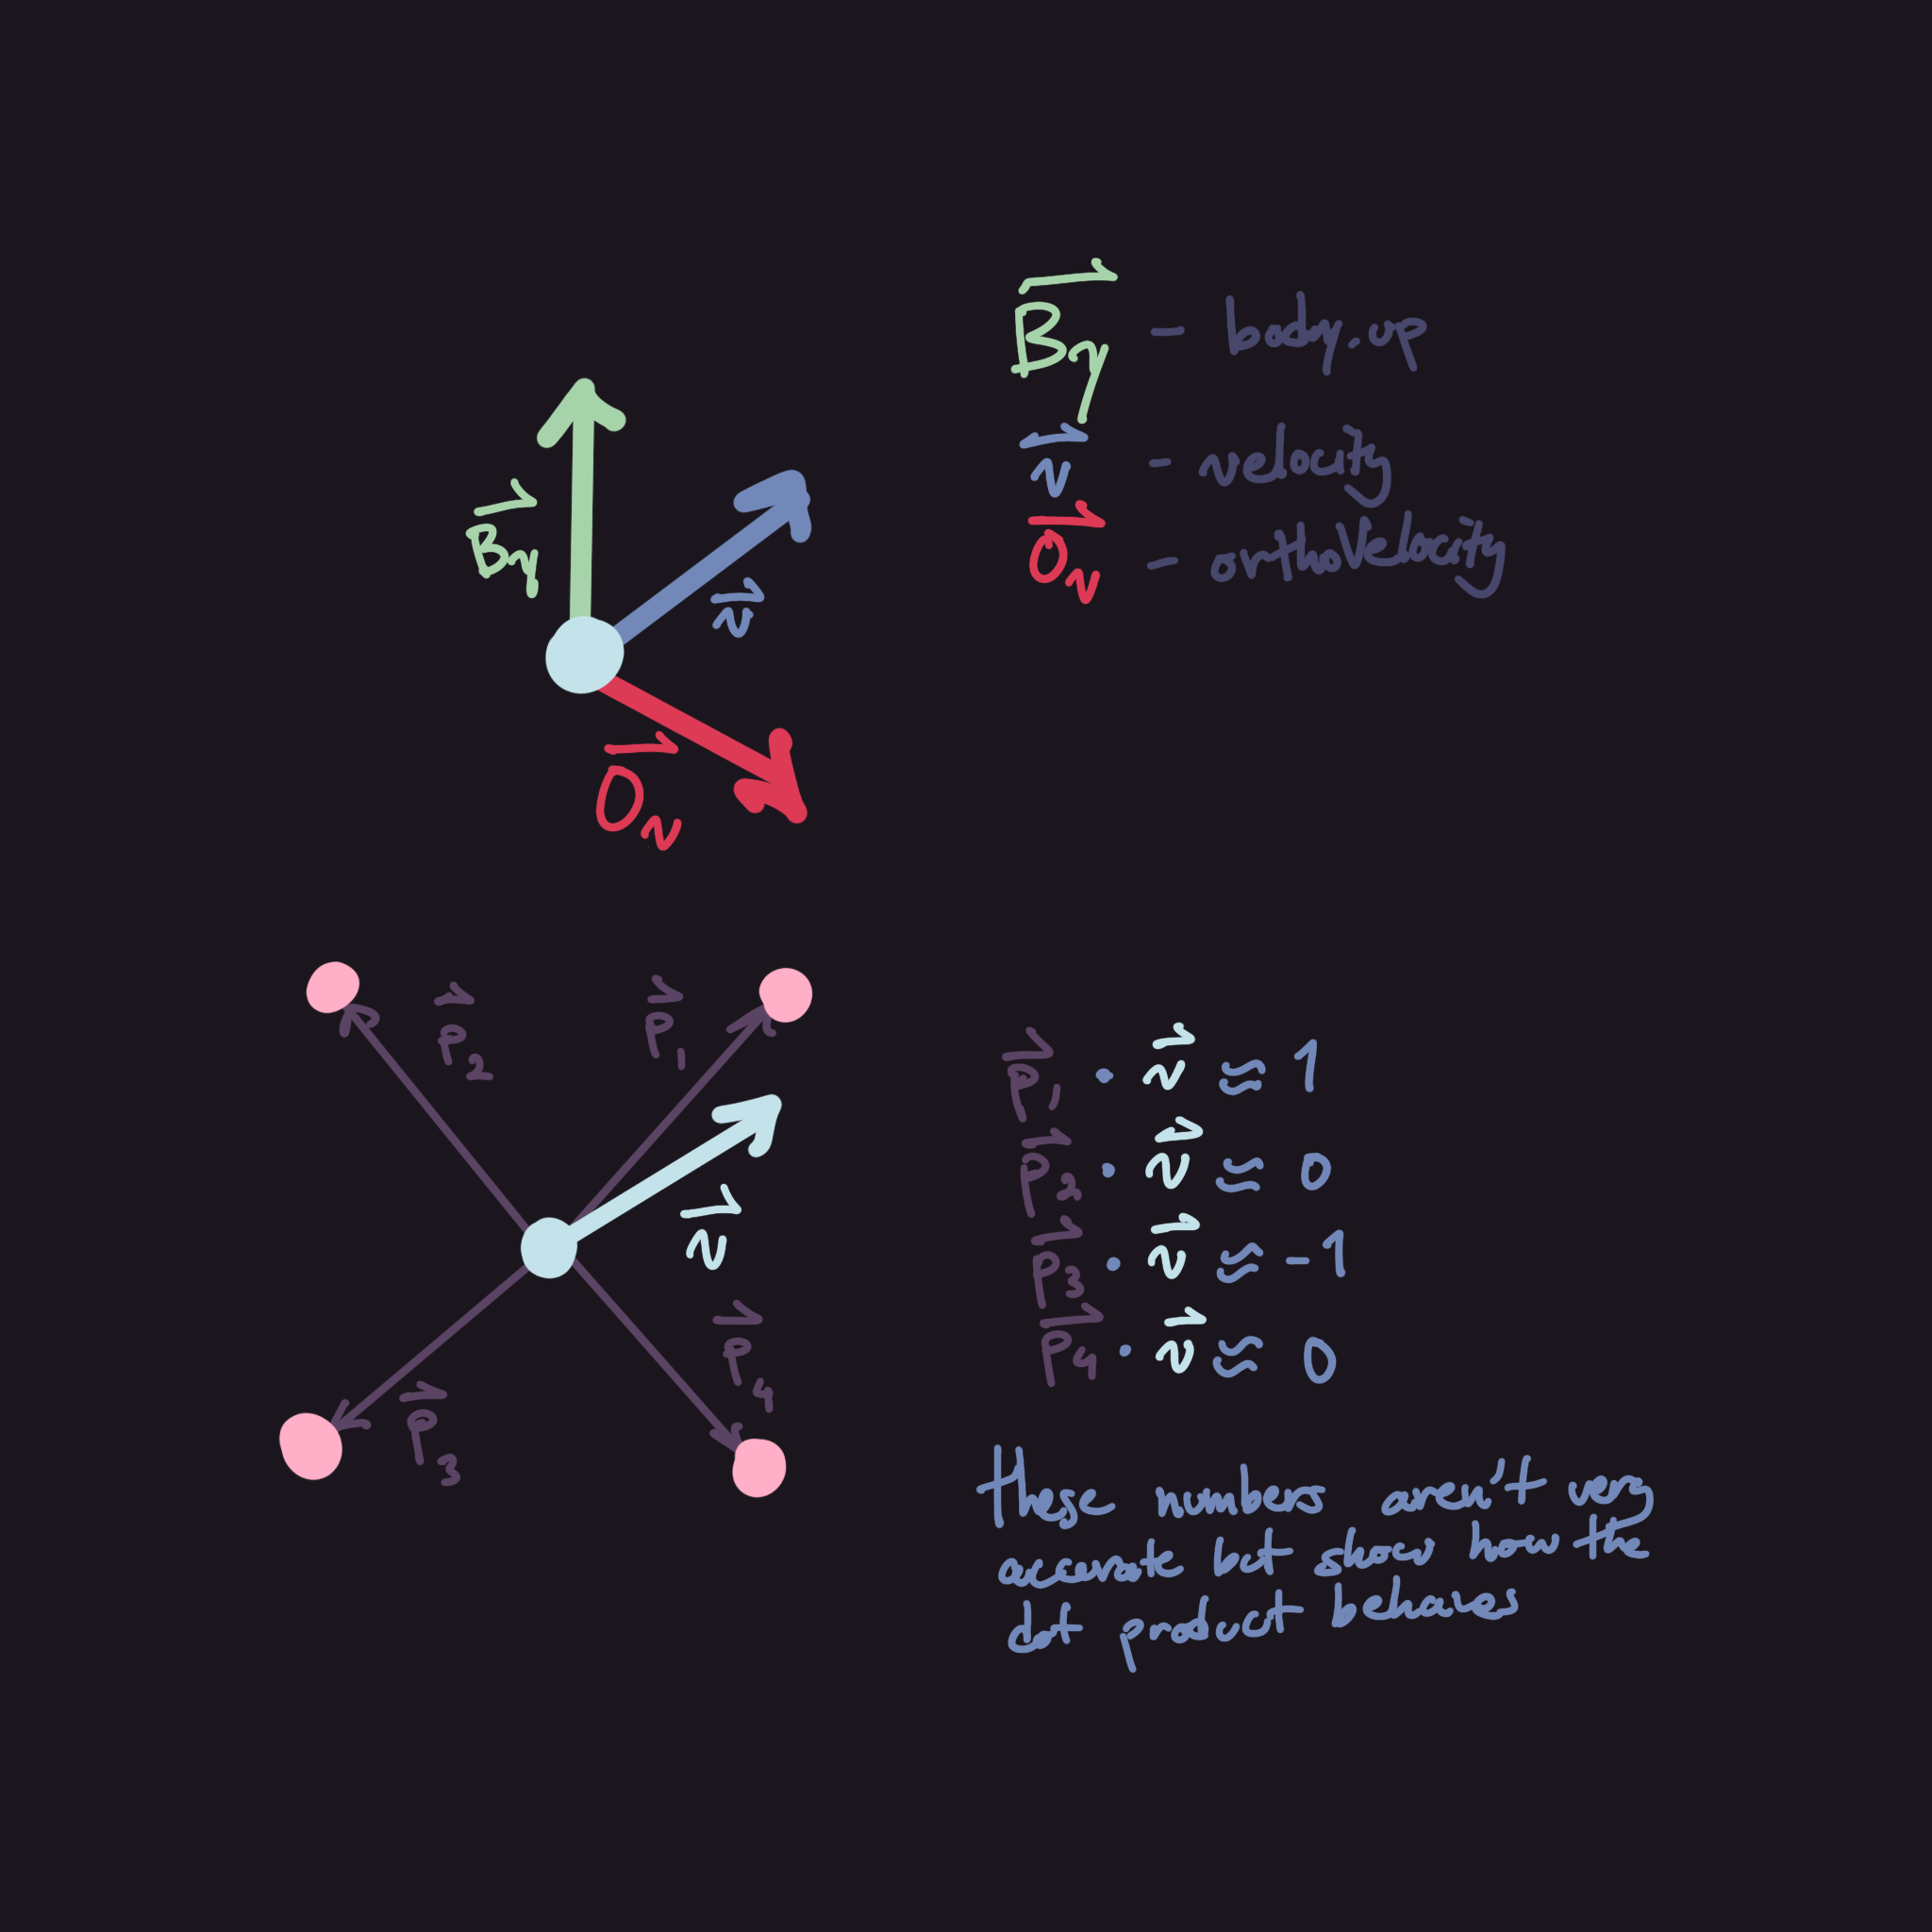 B⃗y - body.up
v⃗ - velocity
O⃗v - orthoVelocity
B⃗y
v⃗
O⃗v
p⃗2
p⃗1
v⃗
p⃗4
p⃗3
p⃗1 · v⃗ ≈ 1
p⃗2 · v⃗ ≈ 0
p⃗3 · v⃗ ≈ -1
p⃗4 · v⃗ ≈ 0
these numbers aren't very
accurate but show how the
dot product behaves